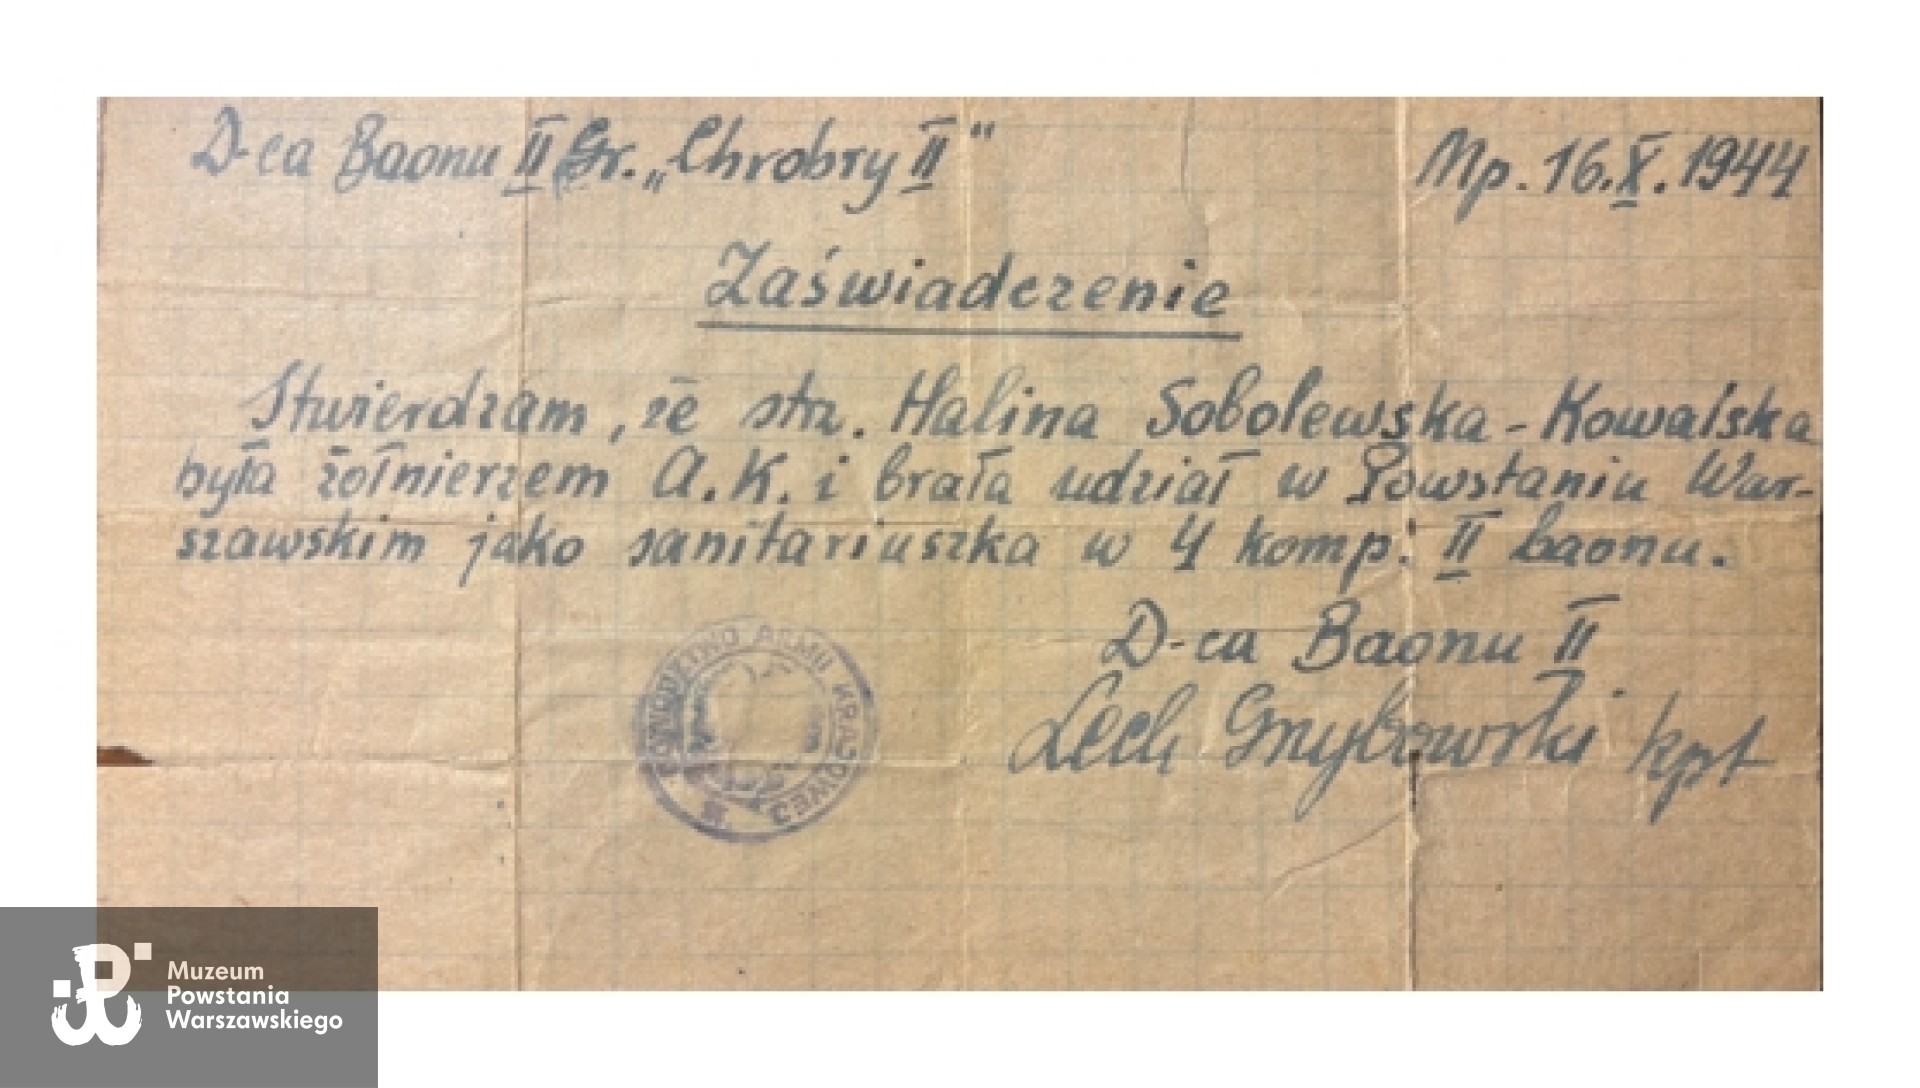 D-ca Baonu II Gr. „Chrobry II"
Mp. 16.X.1944
Zaświadczenie
Stwierdzam, że strz. Halina Sobolewska-Kowalska
była żołnierzem A.K. i brała udział w Powstaniu War-
szawskim jako sanitariuszka w 4 komp. II baonu.
D-ca Baonu II
Lech Grzybowski kpt
KOMENDA ARMII KRAJOWEJ
Muzeum
Powstania
Warszawskiego